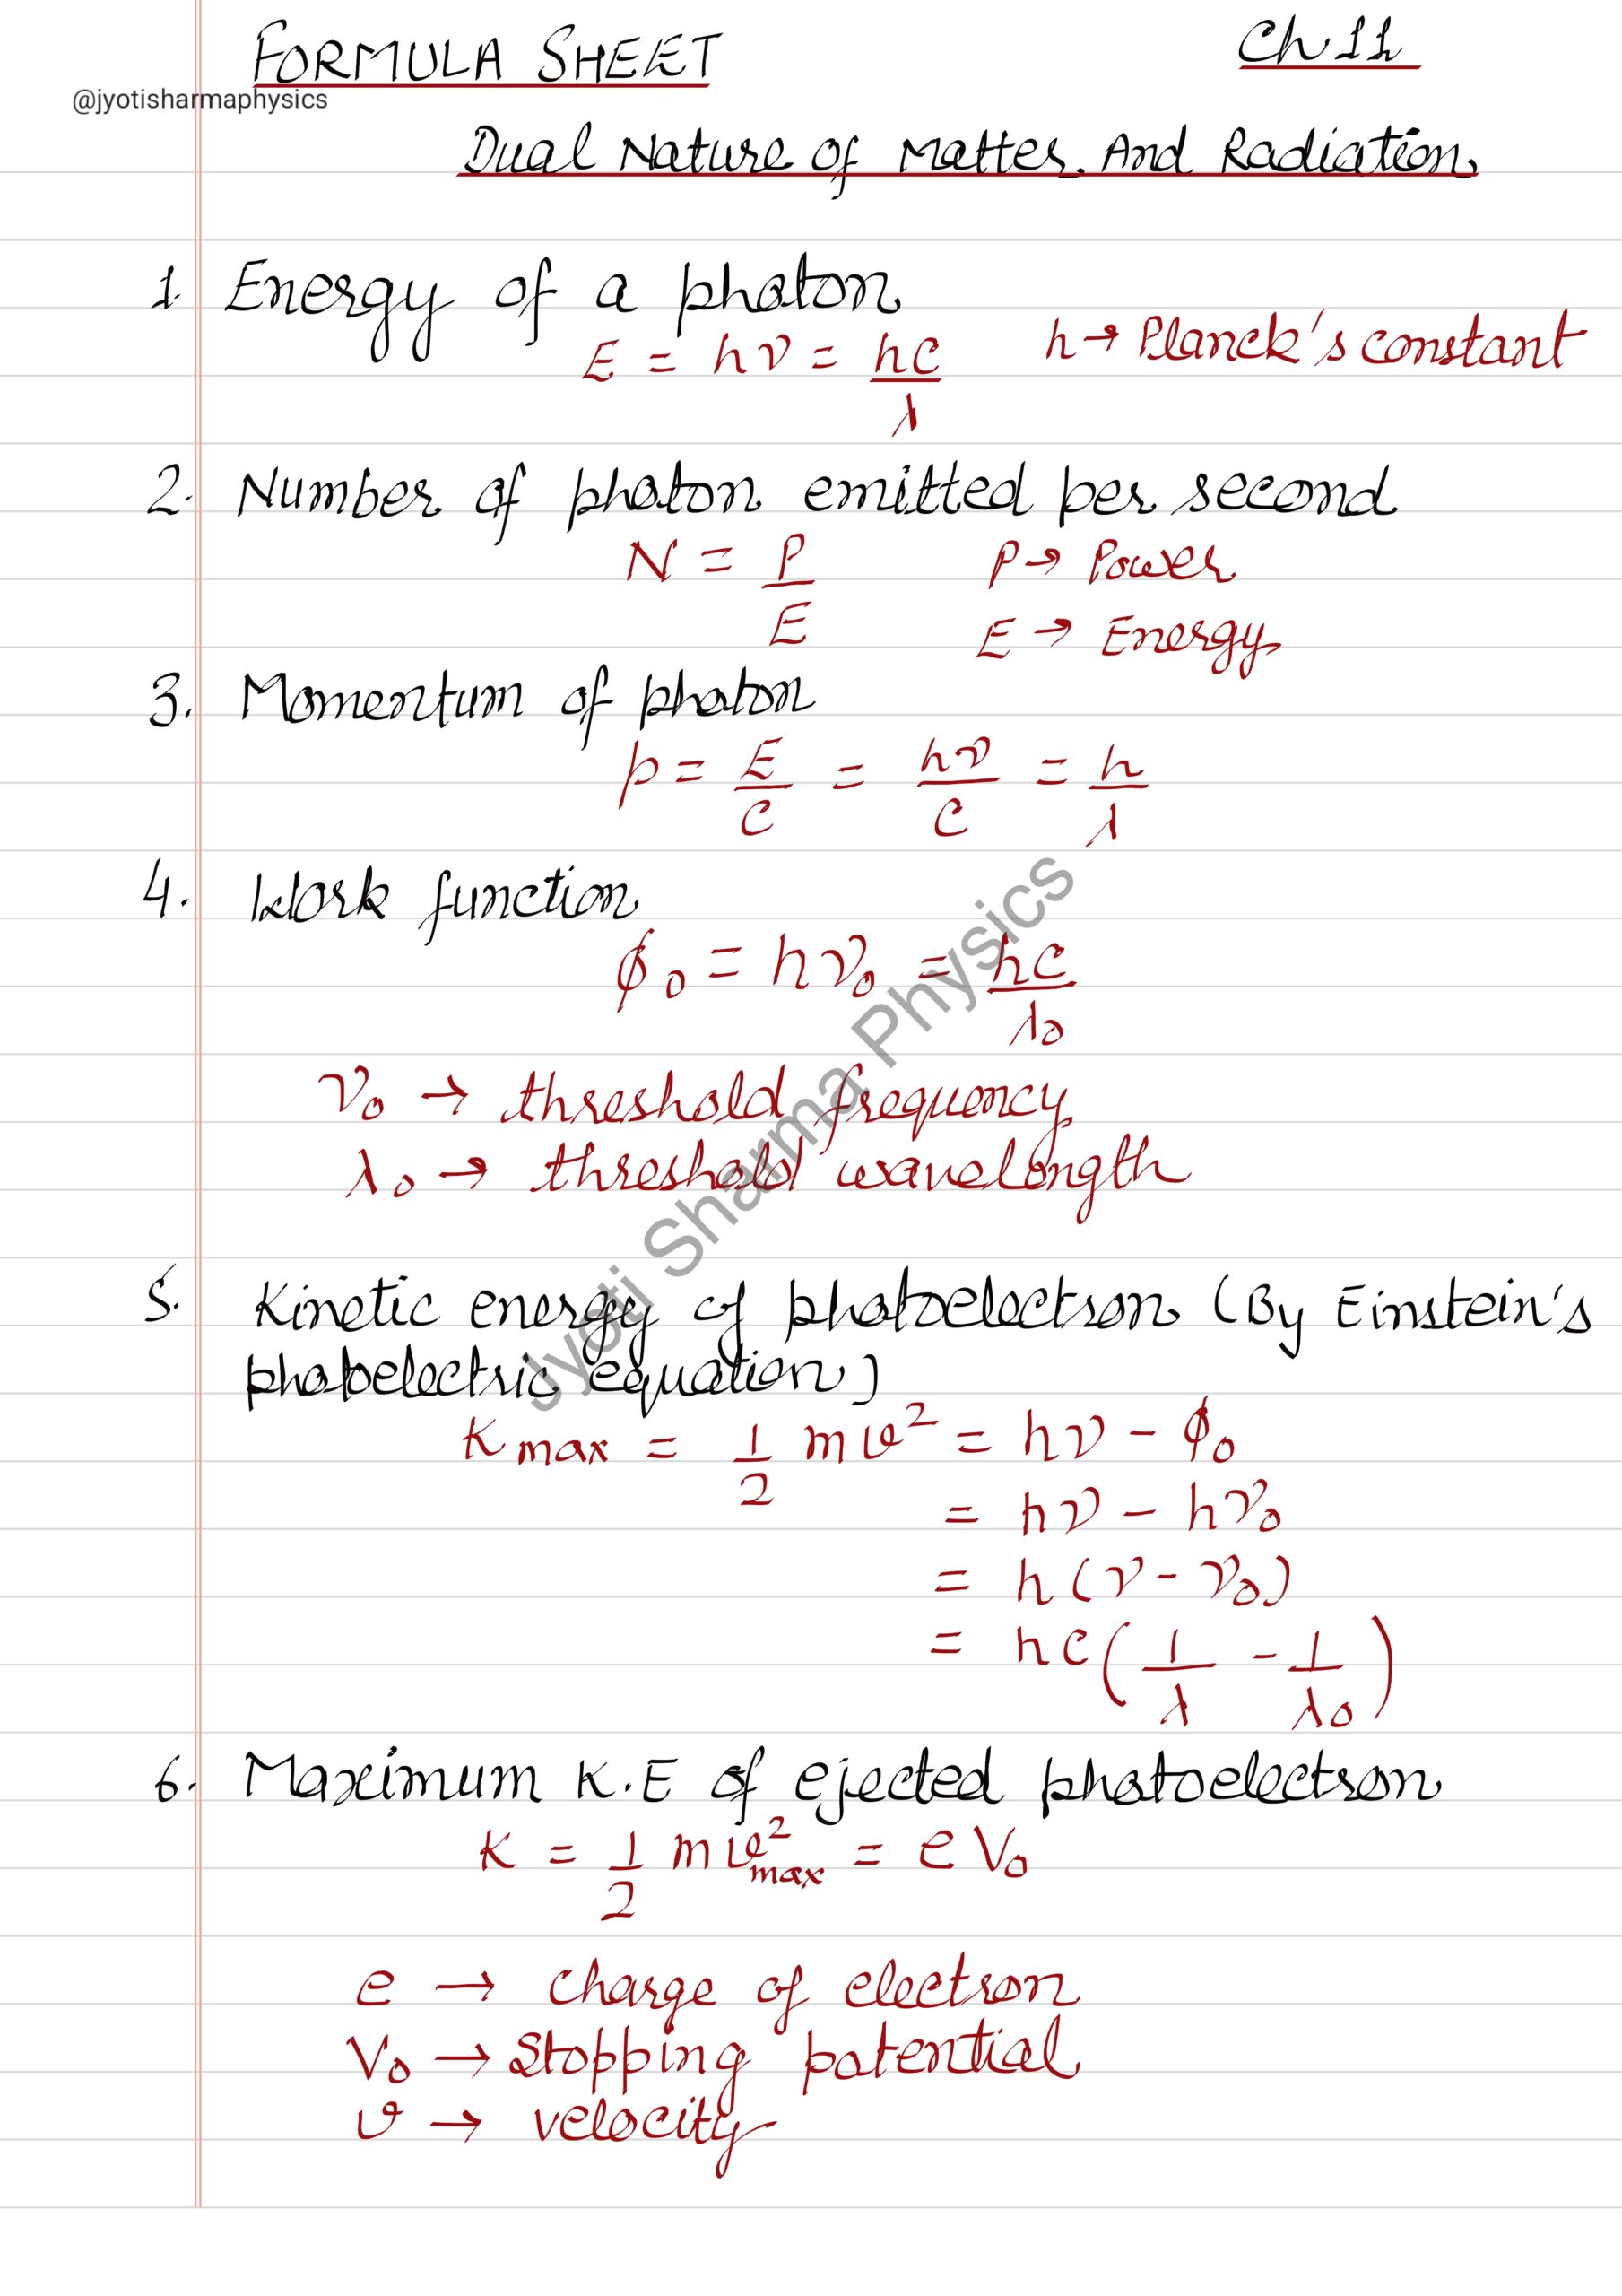 FORMULA SHEET Ch 11
@jyotisharmaphysics
Dual Nature of Matter And Radiation
1. Energy of a photon
E = hν = hc/λ h → Planck's constant
2. Number of photon emitted per second
N = P/E P → Power
E → Energy
3. Momentum of photon
p = E/c = hν/c = h/λ
4. Work function
ϕ₀ = hν₀ = hc/λ₀
ν₀ → threshold frequency
λ₀ → threshold wavelength
Jyoti Sharma Physics
5. Kinetic energy of photoelectron (By Einstein's
photoelectric equation)
K max = 1/2 mv² = hν - ϕ₀
= hν - hν₀
= h(ν - ν₀)
= hc(1/λ - 1/λ₀)
6. Maximum K.E of ejected photoelectron
K = 1/2 mv²max = eV₀
e → charge of electron
V₀ → Stopping potential
v → velocity